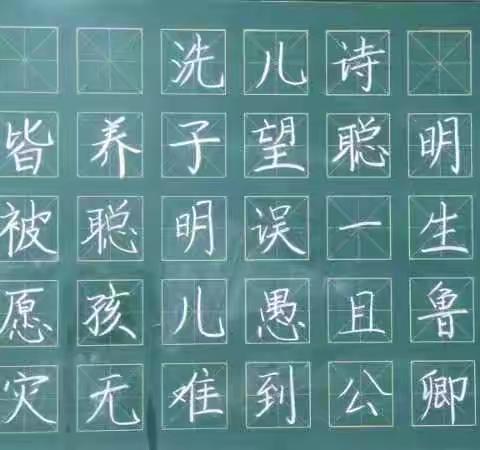 洗儿诗
皆养子望聪明
被聪明误一生
愿孩儿愚且鲁
灾无难到公卿